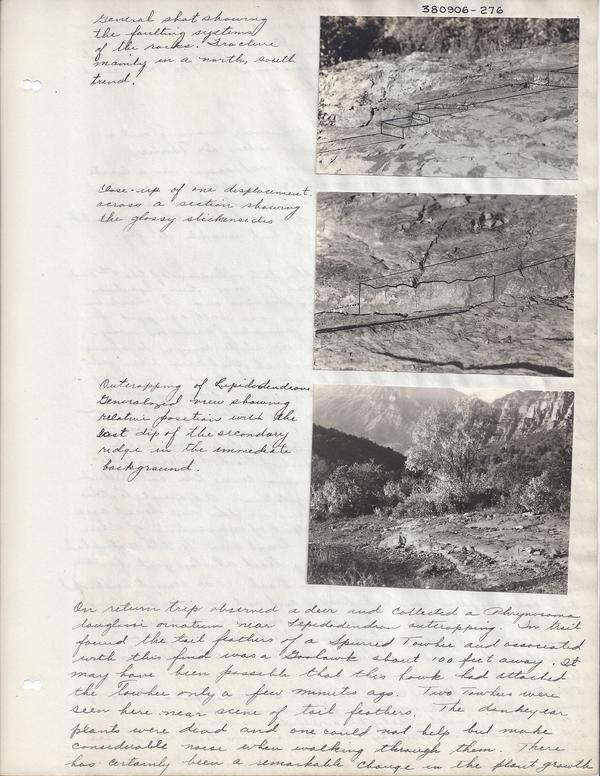 380906-276
General shot showing
the faulting systems
of the rocks. Fracture
mainly in a north, south
trend.
Close-up of one displacement
across a section showing
the glossy slickensides
Outcropping of Lepidodendron
Generalized view showing
relative position with the
east dip of the secondary
ridge in the immediate
background.
On return trip observed a deer and collected a Phrynosoma
douglassi ornatum near Lepidodendron outcropping. In trail
found the tail feathers of a Spurred Towhee and associated
with this find was a Goshawk about 100 feet away. It
may have been possible that this hawk had attacked
the Towhee only a few minutes ago. Two Towhees were
seen here near scene of tail feathers. The donkey ear
plants were dead and one could not help but make
considerable noise when walking through them. There
has certainly been a remarkable change in the plant growth